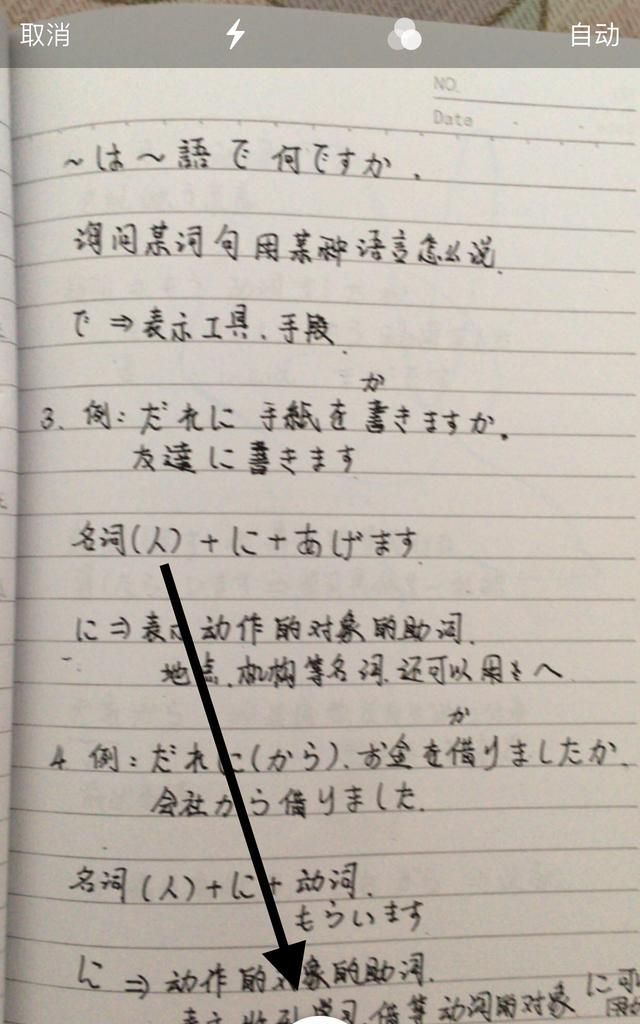 取消 自动
NO.
Date
～は～語で何ですか.
询问某词句用某种语言怎么说.
で⇒表示工具、手段.
か
3. 例：だれに手紙を書きますか。
友達に書きます
名词(人)+に+あげます
に⇒表示动作的对象的助词.
地点、机构等名词,还可以用へ
か
4 例：だれに(から)、お金を借りましたか.
会社から借りました.
名词(人)+に+动词.
もらいます
に⇒动作的对象的助词.
表示收到 学习、借等动词的对象 に可